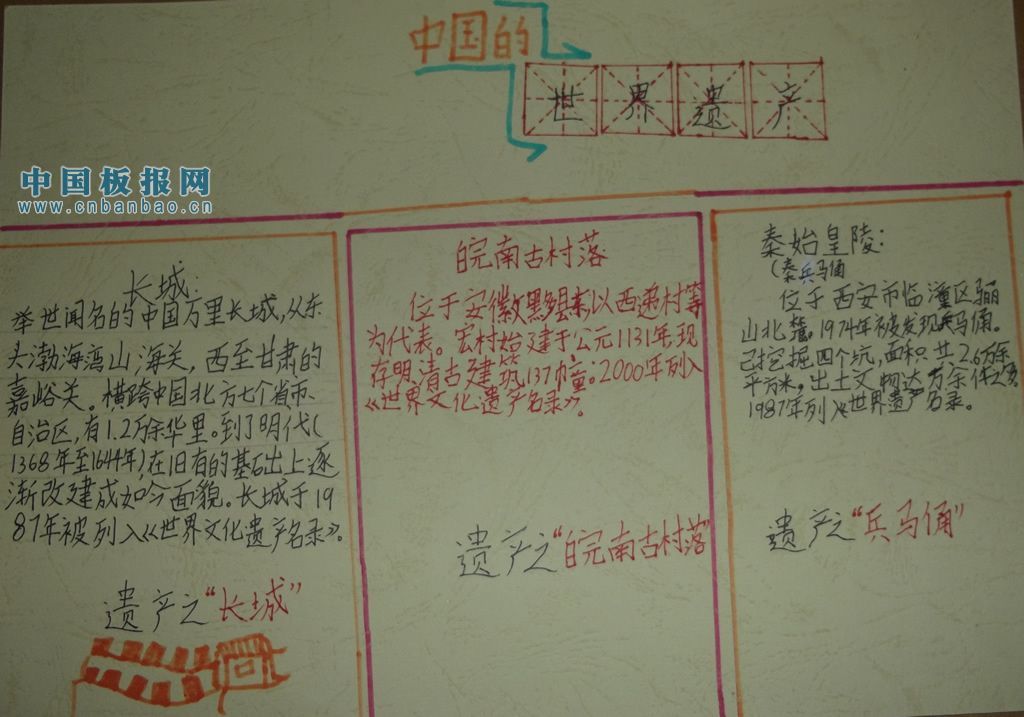 中国的
世界遗产
中国板报网
www.cnbanbao.cn
长城:
举世闻名的中国万里长城,从东
头渤海湾山海关,西至甘肃的
嘉峪关。横跨中国北方七个省市、
自治区,有1.2万余华里。到了明代(
1368年至1644年)在旧有的基础上逐
渐改建成如今面貌。长城于19
87年被列入《世界文化遗产名录》。
遗产之“长城”
皖南古村落
位于安徽黟县东以西递村等
为代表。宏村始建于公元1131年现
存明清古建筑137幢。2000年列入
《世界文化遗产名录》。
遗产之“皖南古村落”
秦始皇陵:
(秦兵马俑
位于西安市临潼区骊
山北麓。1974年被发现兵马俑。
已挖掘四个坑,面积共2.6万余
平方米。出土文物达万余件之多
1987年列入《世界遗产名录。
遗产之“兵马俑”